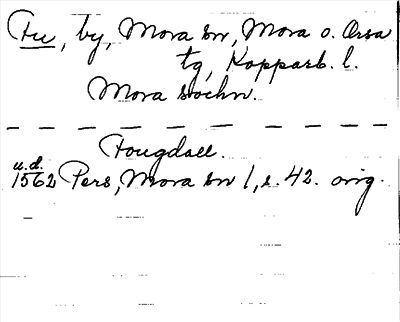 Fu, by, Mora sn, Mora o. Orsa
tg, Kopparb. l.
Mora sochn.
Fougdaell.
u.d.
1562 Pers, Mora sn 1, s. 42. orig.